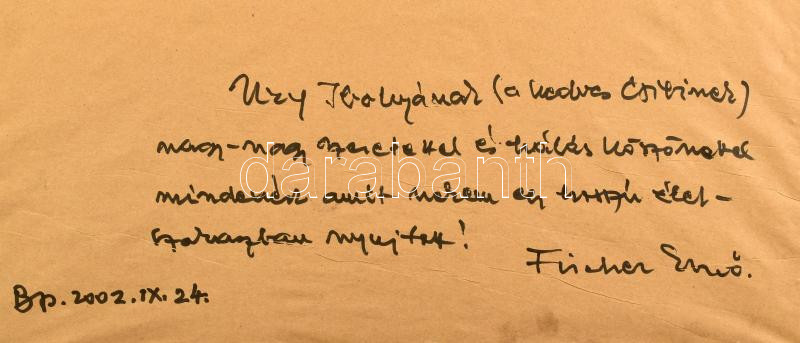 Ury Ibolyának (a kedves Csibinek)
nagy-nagy szeretettel és hálás köszönettel
mindenért amit nekem egy hosszú élet-
szakaszban nyujtott!
Fischer Ernő.
Bp. 2002. IX. 24.
darabanth